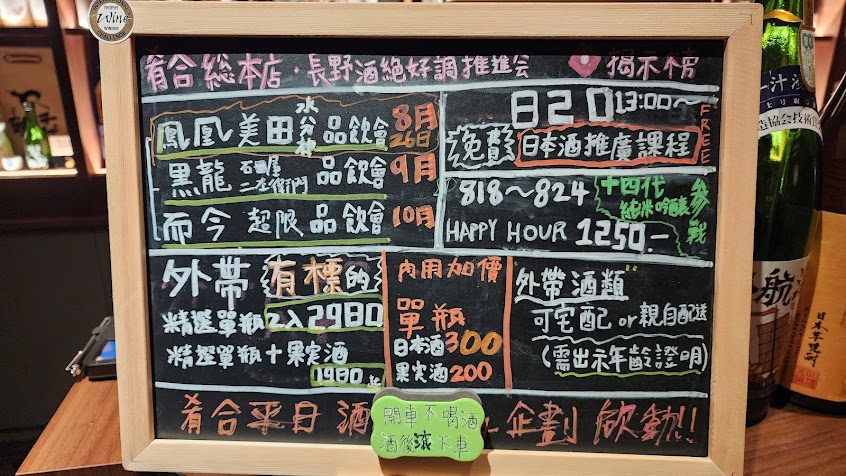 肴合総本店・長野酒絶好調推進会
揭示榜
鳳凰美田 水分神 品飲會 8月26日
黒龍 石田屋 二左衛門 品飲會 9月
而今 超限 品飲會 10月
日20 13:00~
免費 日本酒推廣課程 FREE
818~824
HAPPY HOUR 1250.-
十四代
純米吟釀
參戰
外帶有標的
精選單瓶 2入2980
精選單瓶+果実酒
1980元
內用加價
單瓶
日本酒300
果実酒200
外帶酒類
可宅配 or 親自配送
(需出示年齡證明)
肴合平日酒
企劃 啟動!!
開車不喝酒
酒後滾下車
Wine